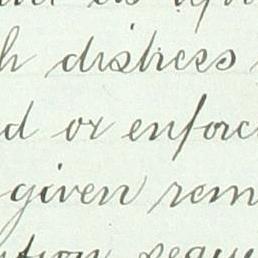 h distress
d or enforc
given rem